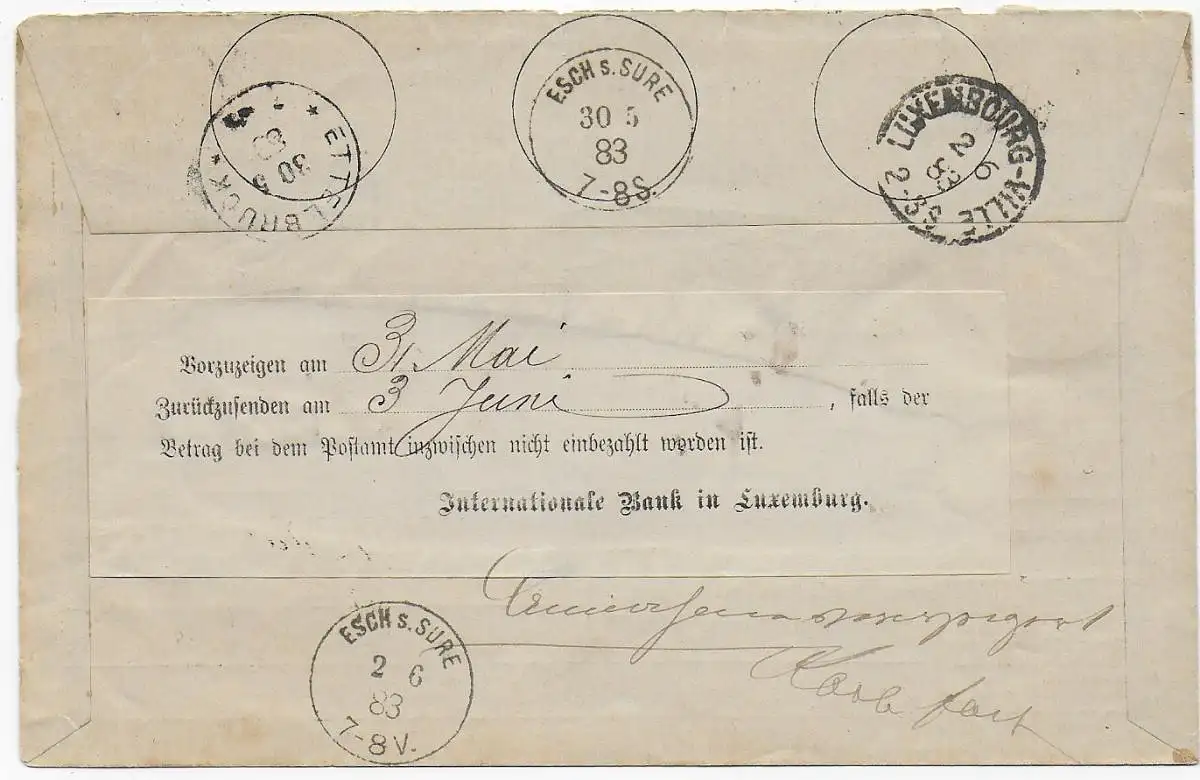 ETTELBRUCK
30 5
83
ESCH s. SURE
30 5
83
7-8S.
LUXEMBOURG-VILLE
2 6
83
2-3S
Vorzuzeigen am 31. Mai
Zurückzusenden am 3 Juni, falls der
Betrag bei dem Postamt inzwischen nicht einbezahlt worden ist.
Internationale Bank in Luxemburg.
ESCH s. SURE
2 6
83
7-8V.